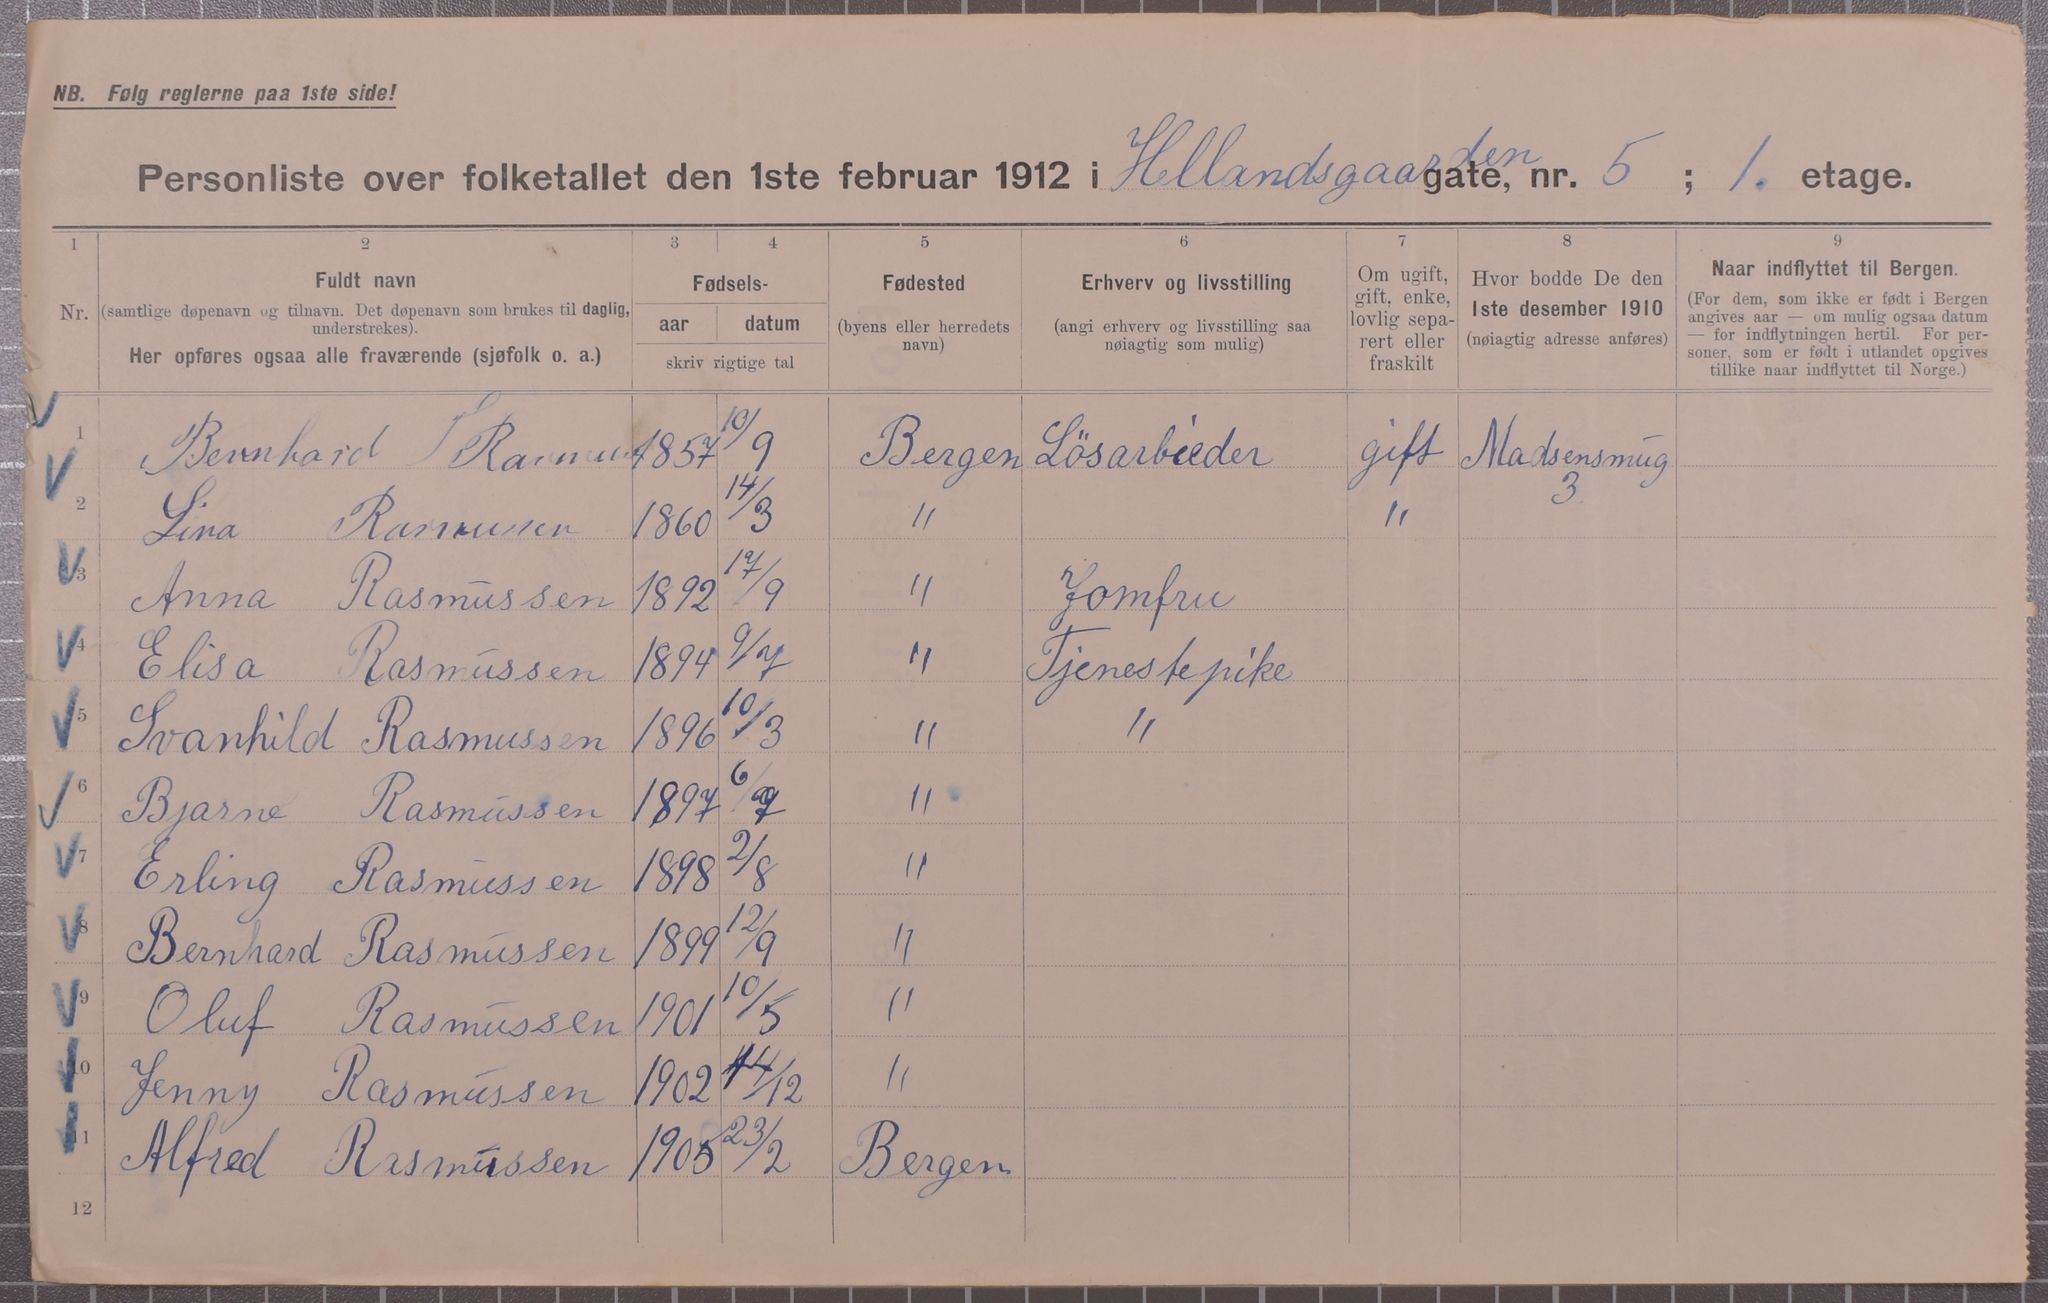 NB. Følg reglerne paa 1ste side!
Personliste over folketallet den 1ste februar 1912 i Hellandsgaarden gate, nr. 5 ; 1. etage.
1 2 3 4 5 6 7 8 9
Nr.
Fuldt navn
(samtlige døpenavn og tilnavn. Det døpenavn som brukes til daglig,
understrekes).
Her opføres ogsaa alle fraværende (sjøfolk o. a.)
Fødsels-
aar datum
skriv rigtige tal
Fødested
(byens eller herredets
navn)
Erhverv og livsstilling
(angi erhverv og livsstilling saa
nøiagtig som mulig)
Om ugift,
gift, enke,
lovlig sepa-
rert eller
fraskilt
Hvor bodde De den
1ste desember 1910
(nøiagtig adresse anføres)
Naar indflyttet til Bergen.
(For dem, som ikke er født i Bergen
angives aar — om mulig ogsaa datum
— for indflytningen hertil. For per-
soner, som er født i utlandet opgives
tillike naar indflyttet til Norge.)
1 Bernhard Rasmus 1857 10/9 Bergen Lösarbeider gift Madsensmug
3
2 Lina Rasmussen 1860 14/3 " "
3 Anna Rasmussen 1892 17/9 " Jomfru
4 Elisa Rasmussen 1894 9/7 " Tjenestepike
5 Svanhild Rasmussen 1896 10/3 " "
6 Bjarne Rasmussen 1897 6/7 "
7 Erling Rasmussen 1898 2/8 "
8 Bernhard Rasmussen 1899 12/9 "
9 Oluf Rasmussen 1901 10/5 "
10 Jenny Rasmussen 1902 14/12 "
11 Alfred Rasmussen 1905 23/2 Bergen
12